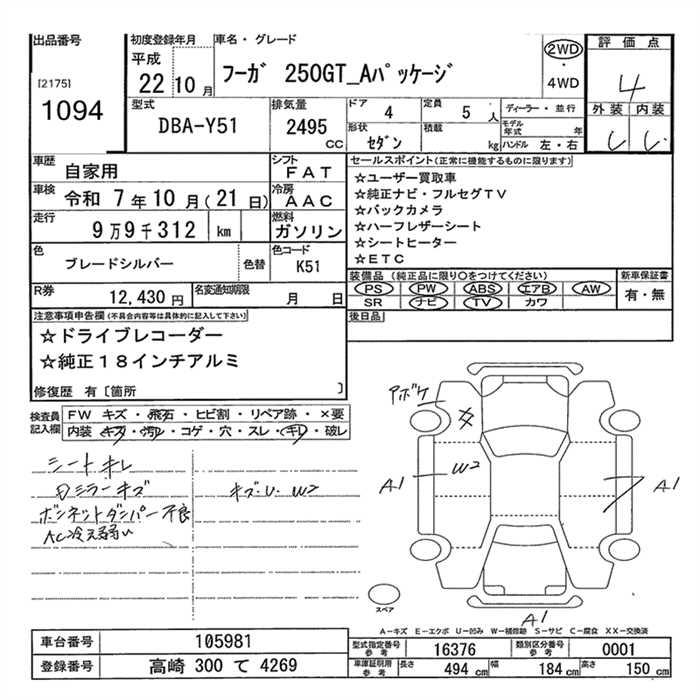 出品番号
[2175]
1094
初度登録年月
平成
22 10 月
車名・グレード
フーガ 250GT_Aパッケージ
2WD
・
4WD
評価点
4
外装 内装
型式
DBA-Y51
排気量
2495
CC
ドア
4
定員
5 人
形状
セダン
積載
kg
ディーラー・並行
モデル年式 年
ハンドル 左・右
車歴
自家用
シフト
FAT
車検
令和 7年10月(21日)
冷房
AAC
走行
9万9千312 km
燃料
ガソリン
色
ブレードシルバー
色替
色コード
K51
R券
12,430 円
名変通知期限
月 日
セールスポイント(正常に機能するものに限ります)
☆ユーザー買取車
☆純正ナビ・フルセグTV
☆バックカメラ
☆ハーフレザーシート
☆シートヒーター
☆ETC
装備品 (純正品に限り○をつけてください)
PS PW ABS エアB AW
SR ナビ TV カワ
新車保証書
有・無
後日品
注意事項申告欄(不具合内容等は具体的に記入して下さい)
☆ドライブレコーダー
☆純正18インチアルミ
修復歴 有〔箇所 〕
検査員記入欄
FW キズ・飛石・ヒビ割・リペア跡・×要
内装 キズ・汚レ・コゲ・穴・スレ・キレ・破レ
シートキレ
キズ・U・W2
ボンネットダンパー不良
AC冷え弱い
アボケ
A1
W2
A1
A1
スペア
A-キズ E-エクボ U-凹み W-補修跡 S-サビ C-腐食 XX-交換済
車台番号
105981
登録番号
高崎 300 て 4269
型式指定番号
参考
16376
類別区分番号
参考
0001
車庫証明用
参考
長さ
494 cm
幅
184 cm
高さ
150 cm